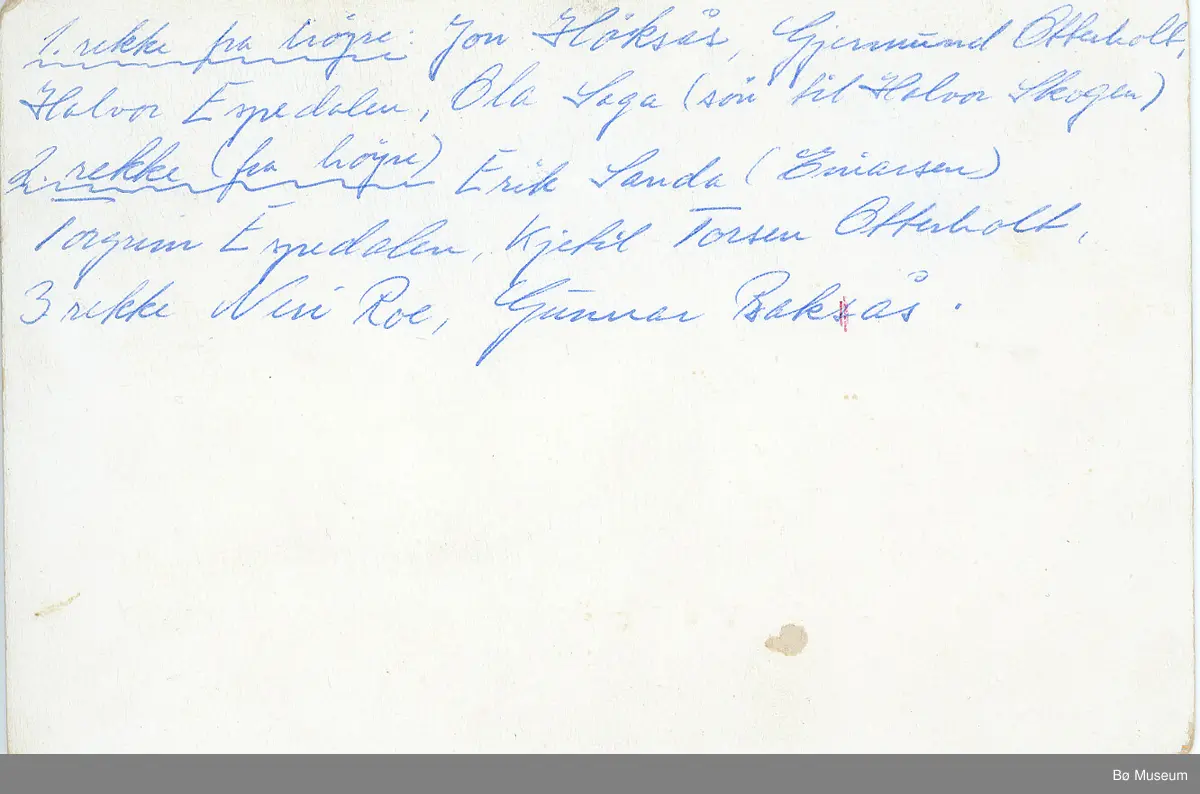 1. rekke fra högre: Jon Höksås, Gjermund Otterholt,
Halvor Espedalen, Ola Saga (sön til Halvor Skogen)
2. rekke (fra högre) Erik Sanda (Einarsen)
Torgrim Espedalen, Kjetil Torsen Otterholt,
3 rekke Neri Roe, Gunnar Baksås.
Bø Museum